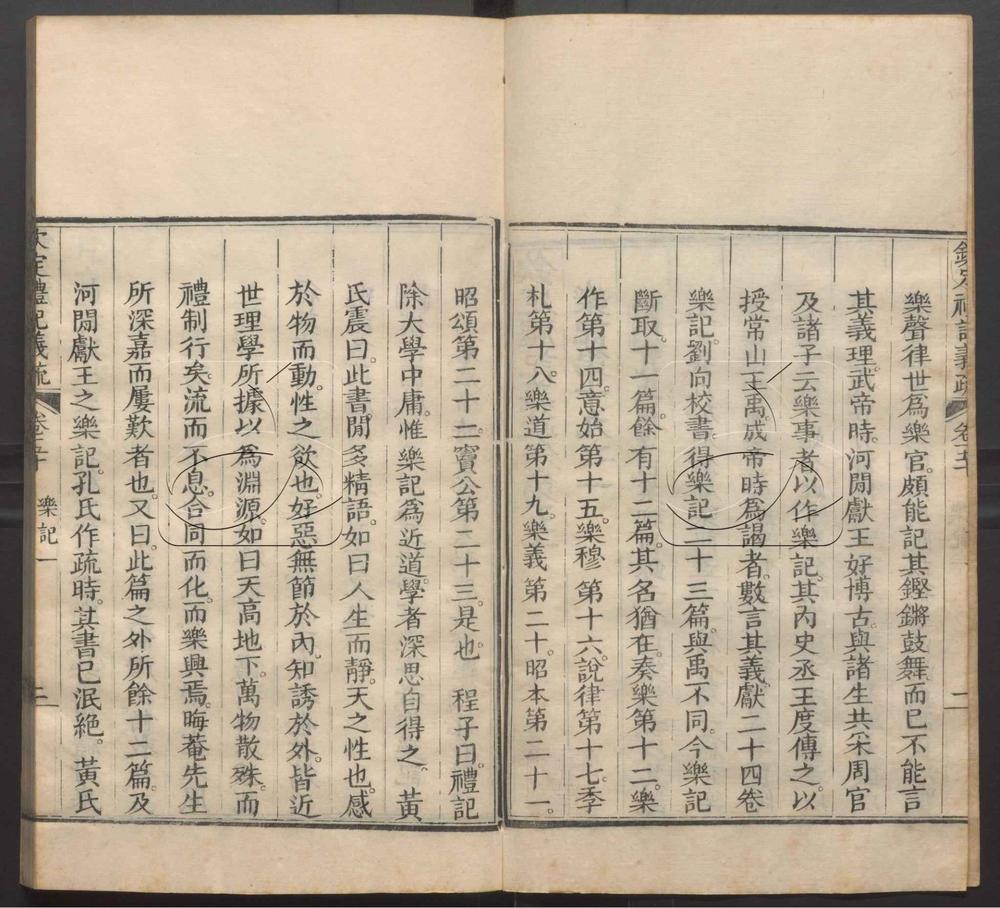 欽定禮記義疏 卷五十 二
樂聲律世爲樂官。頗能記其鏗鏘鼓舞而已不能言
其義理。武帝時。河閒獻王好博古。與諸生共采周官
及諸子云樂事者以作樂記。其內史丞王度傳之。以
授常山王禹。成帝時爲謁者。數言其義。獻二十四卷
樂記。劉向校書。得樂記二十三篇。與禹不同。今樂記
斷取。十一篇。餘有十二篇。其名猶在。奏樂第十二。樂
作第十四。意始第十五。樂穆第十六。說律第十七。季
札第十八。樂道第十九。樂義第二十。昭本第二十一。
昭頌第二十二。竇公第二十三。是也 程子曰。禮記
除大學中庸。惟樂記爲近道。學者深思自得之。 黃
氏震曰。此書閒多精語。如曰人生而靜。天之性也。感
於物而動。性之欲也。好惡無節於內。知誘於外。皆近
世理學所據以爲淵源。如曰天高地下。萬物散殊。而
禮制行矣。流而不息。合同而化。而樂興焉。晦菴先生
所深嘉而屢歎者也。又曰。此篇之外所餘十二篇。及
河閒獻王之樂記。孔氏作疏時。其書已泯絶。 黃氏
欽定禮記義疏 卷五十 樂記一 二